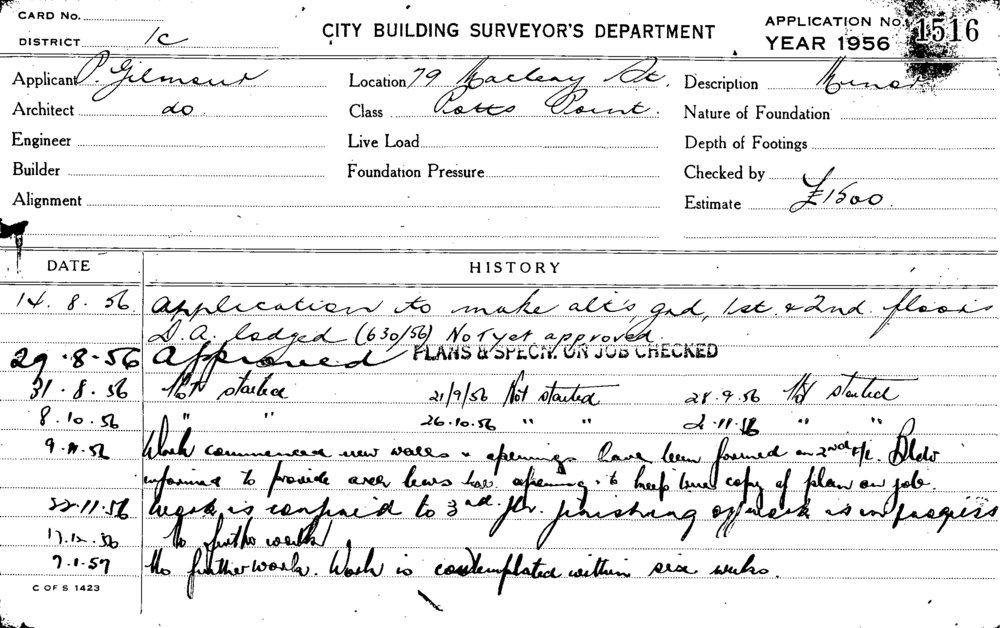 CARD No.
DISTRICT 1C
CITY BUILDING SURVEYOR'S DEPARTMENT
APPLICATION No. 1516
YEAR 1956
Applicant P. Gilmour Location 79 Macleay St. Description Minor
Architect do Class Potts Point. Nature of Foundation
Engineer Live Load Depth of Footings
Builder Foundation Pressure Checked by
Alignment Estimate £1500
DATE HISTORY
14. 8. 56 Application to make alt's, gnd, 1st & 2nd floors
D.A. lodged (630/56) Not yet approved.
29.8.56 Approved PLANS & SPECN. ON JOB CHECKED
31.8.56 Not started 21/9/56 Not started 28.9.56 Not started
8.10.56 " " 26.10.56 " " 2.11.56 " "
9.11.56 Work commenced new walls & openings have been formed on 2nd flr. Bldr
informed to provide over opening & to keep copy of plan on job.
22.11.56 Work is confined to 3rd flr. finishing of work is in progress
17.12.56 No further work
7.1.57 No further work. Work is contemplated within six weeks.
C OF S 1423